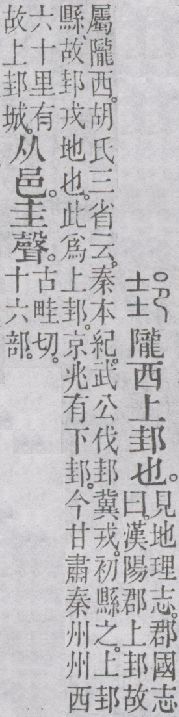 隴西上邽也。見地理志。郡國志
曰。漢陽郡上邽故
屬隴西。胡氏三省云。秦本紀。武公伐邽冀戎。初縣之。上邽
縣。故邽戎地也。此爲上邽。京兆有下邽。今甘肅秦州州西
六十里有
故上邽城。从邑。圭聲。古畦切。
十六部。